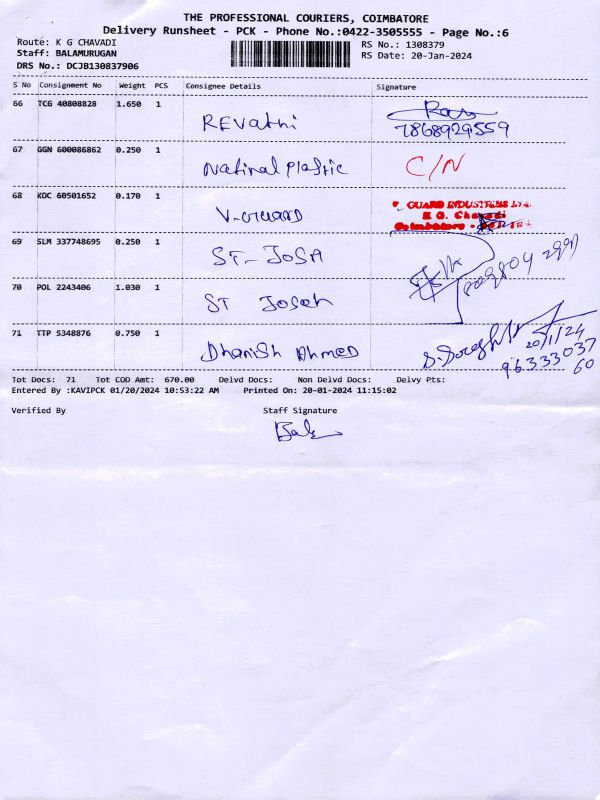 THE PROFESSIONAL COURIERS, COIMBATORE
Delivery Runsheet - PCK - Phone No.:0422-3505555 - Page No.:6
Route: K G CHAVADI RS No.: 1308379
Staff: BALAMURUGAN RS Date: 20-Jan-2024
DRS No.: DCJB130837906
S No Consignment No Weight PCS Consignee Details Signature
66 TCG 40808828 1.650 1
REVathi
7868929559
67 GGN 600086862 0.250 1
National Plastic C/N
68 KOC 60501652 0.170 1
V-GUARD
GUARD INDUSTRIES
K G. Chavadi
Coimbatore -
69 SLM 337748695 0.250 1
ST-JOSA
70 POL 2243406 1.030 1
ST Joseh
71 TTP 5348876 0.750 1
Dhanish Ahmed
20/1/24
96333037
60
Tot Docs: 71 Tot COD Amt: 670.00 Delvd Docs: Non Delvd Docs: Delvy Pts:
Entered By :KAVIPCK 01/20/2024 10:53:22 AM Printed On: 20-01-2024 11:15:02
Verified By Staff Signature